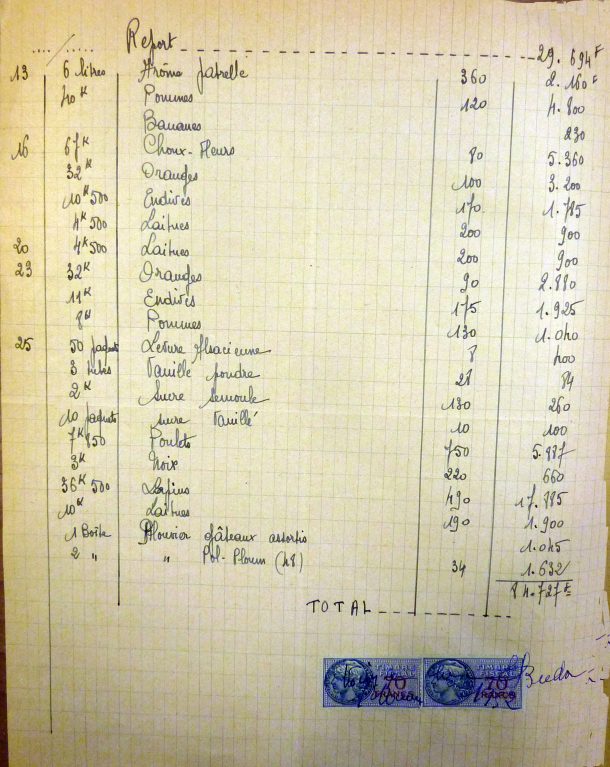 Report 29.694 F
13 6 litres Arôme Patrelle 360 2.160 F
40 K Pommes 120 4.800
Bananes 230
16 67 K Choux-Fleurs 80 5.360
32 K Oranges 100 3.200
10 K 500 Endives 170 1.785
4 K 500 Laitues 200 900
20 4 K 500 Laitues 200 900
23 32 K Oranges 90 2.880
11 K Endives 175 1.925
8 K Pommes 130 1.040
25 50 paquets Levure Alsacienne 8 400
3 tubes Vanille poudre 28 84
2 K Sucre semoule 130 260
10 paquets sucre Vanillé 10 100
7 K 850 Poulets 750 5.887
3K Noix 220 660
36 K 500 Lapins 490 17.885
10 K Laitues 190 1.900
1 Boîte Plouvier gâteaux assortis 1.045
2 " " Pol-Ploum (48) 34 1.632
TOTAL 84.727 F
TIMBRE
70 FRANCS
70 FRANCS